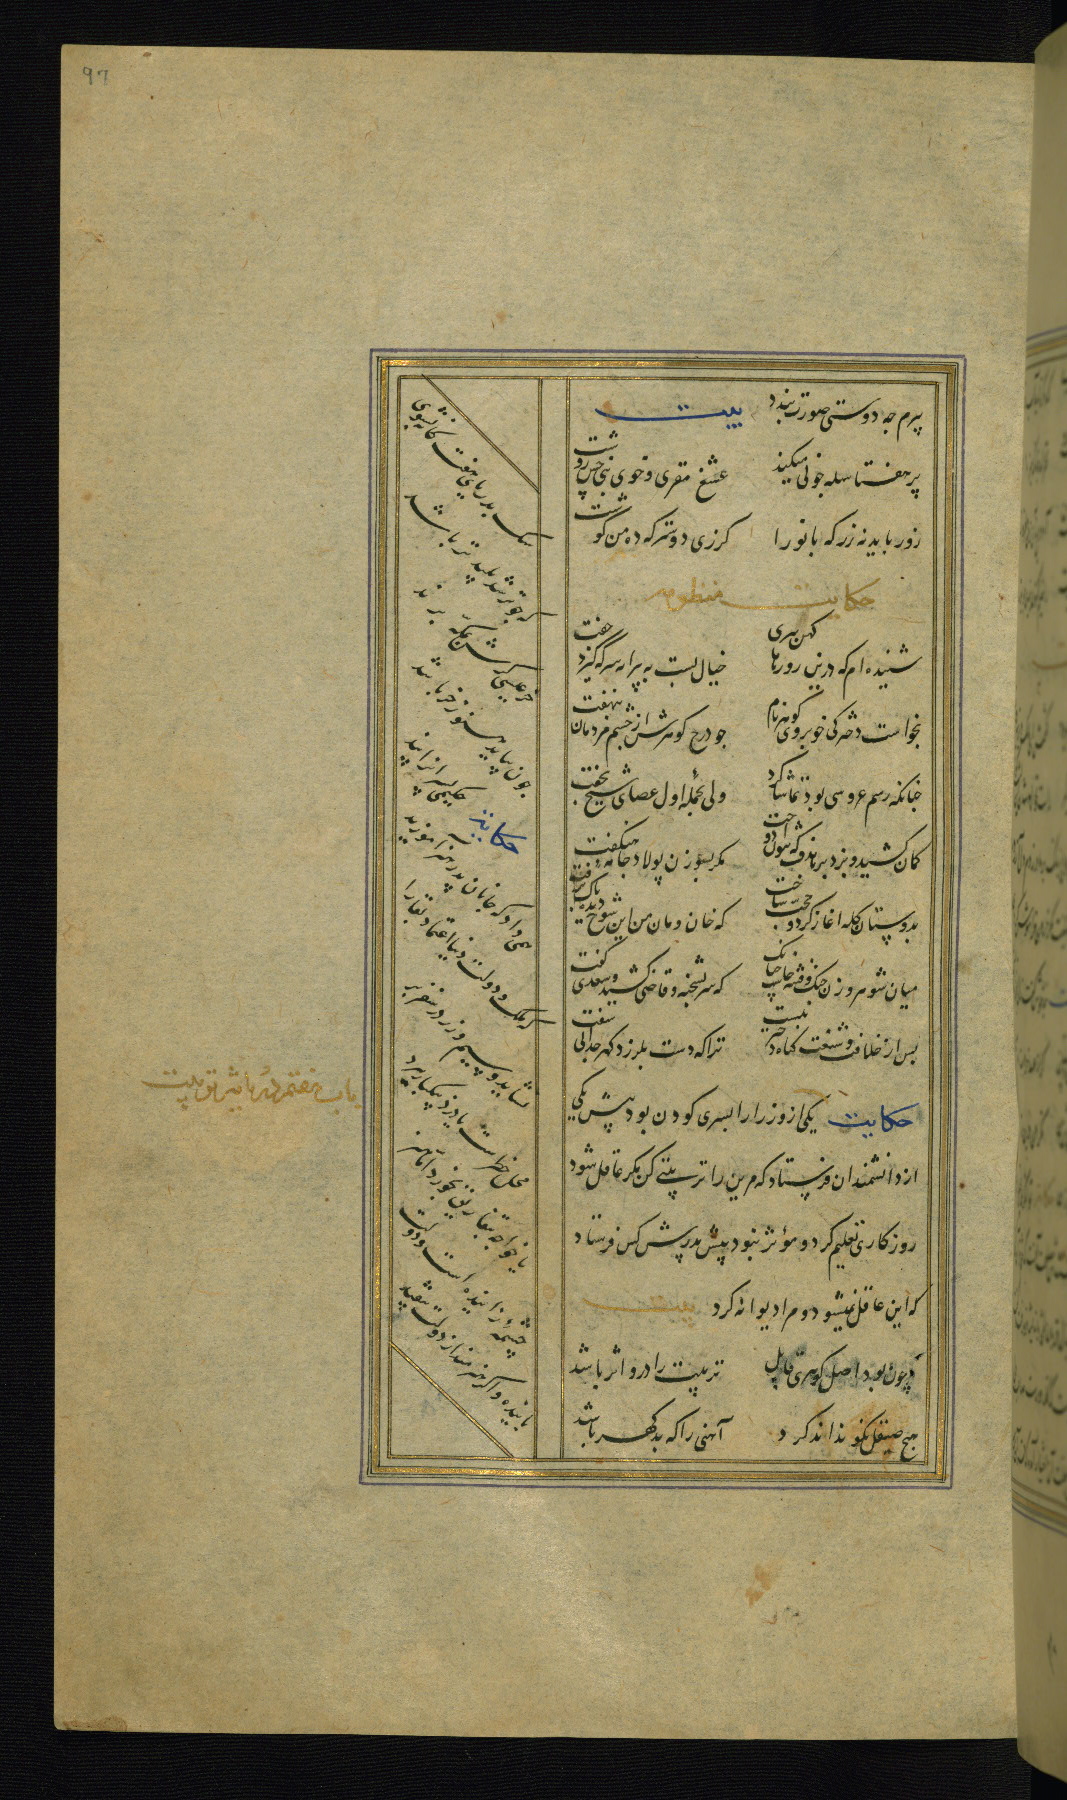 97
پیرم چه دوستی صورت بندد بیت
پر هفتا سله جونی میکند عشغ مقری و خوی بنی چش روشت
زور باید نه زر که بانو را کزری دوستر که ده من گوشت
حکایت منظومه
شنیده ام که درین روزها کهن پیری خیال بست به پیرانه سر که گیرد جفت
بخواست دخترکی خوبروی گوهر نام چو درج گوهرش از چشم مردمان نهفت
چنانکه رسم عروسی بود تماشا کرد ولی بحمله اول عصای شیخ بخفت
کمان کشید و نزد بر هدف که نتوان دوخت مگر بسوزن پولاد جامه هنگفت
بدوستان گله آغاز کرد و حجت ساخت که خان و مان من این شوخ دیده پاک برفت
میان شوهر و زن جنگ و فتنه خاست چنانک که سر بشحنه و قاضی کشید و سعدی گفت
پس از خلافت و شنعت گناه دختر نیست ترا که دست بلرزد گهر چه دانی سفت
حکایت یکی از وزرا را پسری کودن بود پیش یکی
از دانشمندان فرستاد که مرین را تربیتی کن مگر عاقل شود
روزگاری تعلیم کرد و مؤثر نبود پیش پدرش کس فرستاد
که این عاقل نمیشود و مرا دیوانه کرد بیت
چون بود اصل گوهری قابل تربیت را درو اثر باشد
هیچ صیقل نکو نداند کرد آهنی را که بدگهر باشد
سگ بدریای هفت گانه بشوی
که چو تر شد پلیدتر باشد
خر عیسی گرش بمکه برند
چون بیاید هنوز خر باشد
حکایت حکیمی پسرانرا پند
همی داد که جانان پدر هنر آموزید
که ملک و دولت دنیا اعتماد را نشاید و سیم و زر در سفر بر
محل خطرست یا دزد بیکبار ببرد
یا خواجه بتفاریق بخورد اما هنر
چشمه زاینده است و دولت
پاینده و اگر هنرمند از دولت بیفتد
باب هفتم در تاثیر تربیت